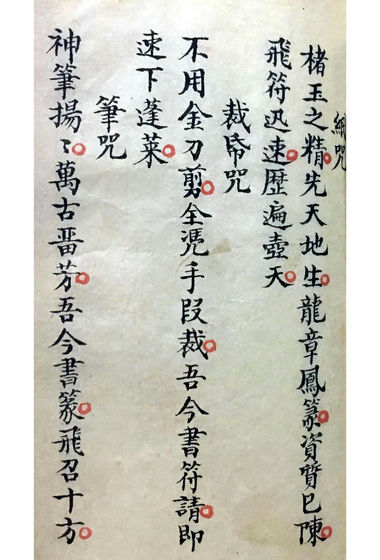 紙咒
楮王之精先天地生龍章鳳篆資質已陳
飛符迅速歷遍壺天
裁帋咒
不用金刀剪全凴手段裁吾今書符請即
速下蓬萊
筆咒
神筆揚〻萬古晋芳吾今書篆飛召十方